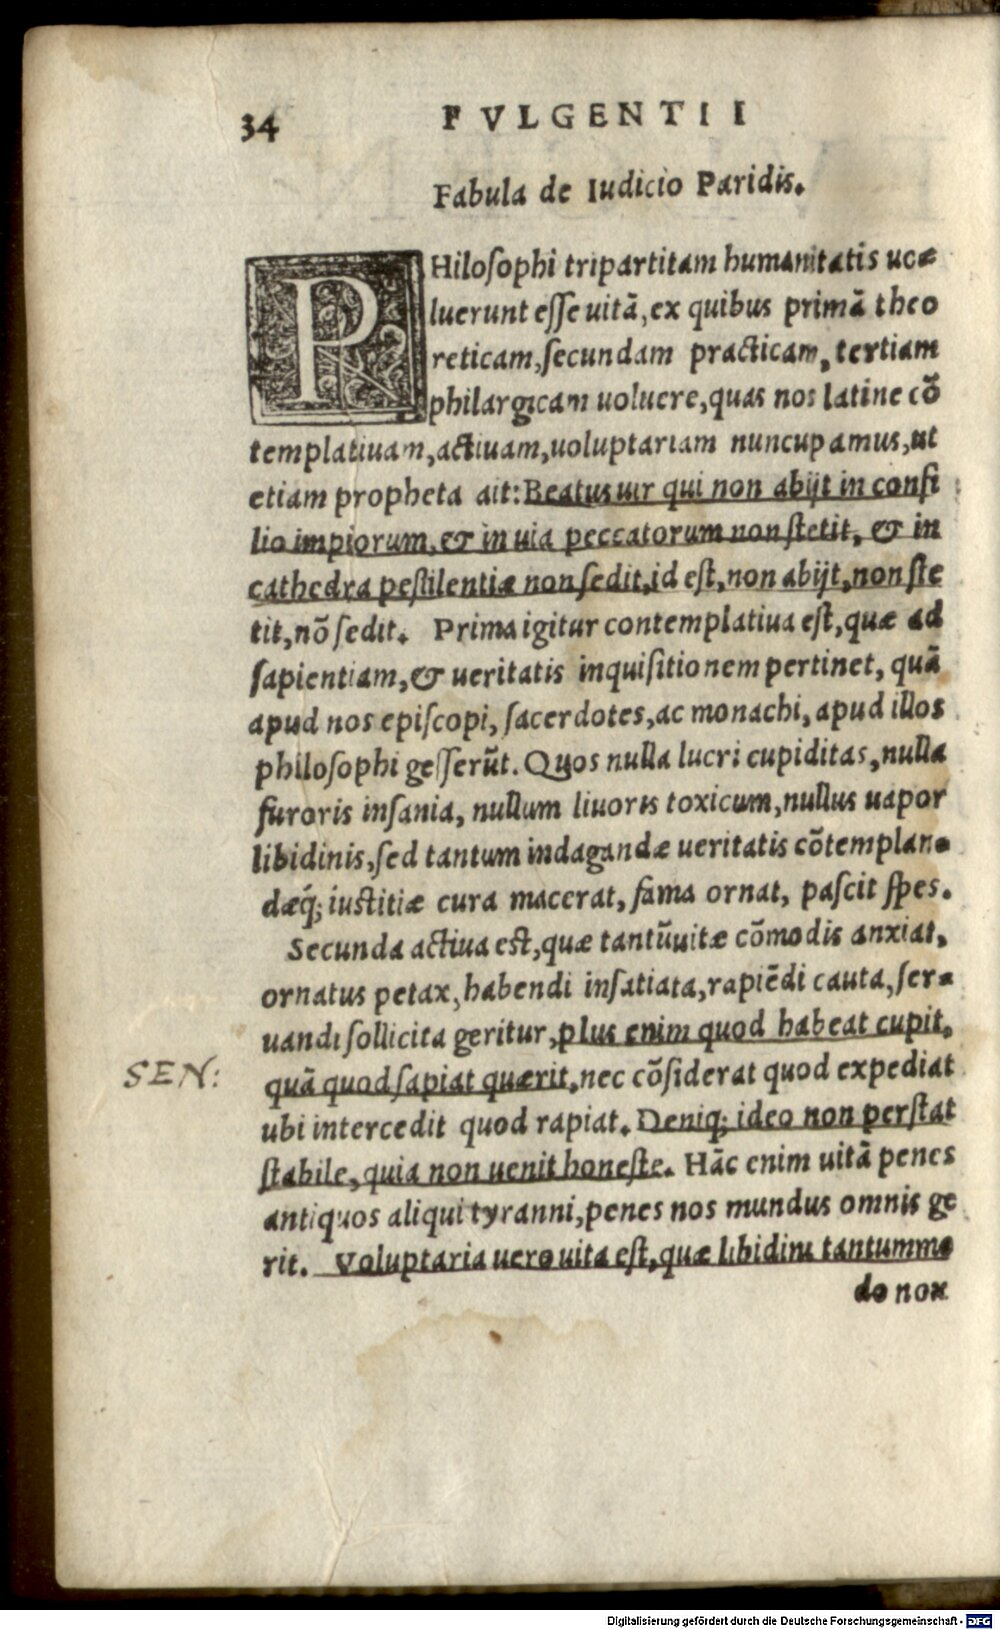 34
FVLGENTII
Fabula de Iudicio Paridis.
PHiloſophi tripartitam humanitatis uo⸗
luerunt eſſe uitā, ex quibus primā theo
reticam, ſecundam practicam, tertiam
philargicam uoluere, quas nos latine cō
templatiuam, actiuam, uoluptariam nuncupamus, ut
etiam propheta ait: Beatus uir qui non abijt in conſi
lio impiorum, & in uia peccatorum non ſtetit, & in
cathedra peſtilentiæ non ſedit, id eſt, non abijt, non ſte
tit, nō ſedit. Prima igitur contemplatiua eſt, quæ ad
ſapientiam, & ueritatis inquiſitionem pertinet, quā
apud nos epiſcopi, ſacerdotes, ac monachi, apud illos
philoſophi geſſerūt. Quos nulla lucri cupiditas, nulla
furoris inſania, nullum liuoris toxicum, nullus uapor
libidinis, ſed tantum indagandæ ueritatis cōtemplan⸗
dæq́; iuſtitiæ cura macerat, fama ornat, paſcit ſpes.
Secunda actiua eſt, quæ tantū uitæ cōmodis anxiat,
ornatus petax, habendi inſatiata, rapiēdi cauta, ſer⸗
uandi ſollicita geritur, plus enim quod habeat cupit,
SEN:
quā quod ſapiat quærit, nec cōſiderat quod expediat
ubi intercedit quod rapiat. Deniq; ideo non perſtat
ſtabile, quia non uenit honeſte. Hāc enim uitā penes
antiquos aliqui tyranni, penes nos mundus omnis ge
rit. Voluptaria uero uita eſt, quæ libidini tantummo
do nox
Digitalisierung gefördert durch die Deutsche Forschungsgemeinschaft - DFG